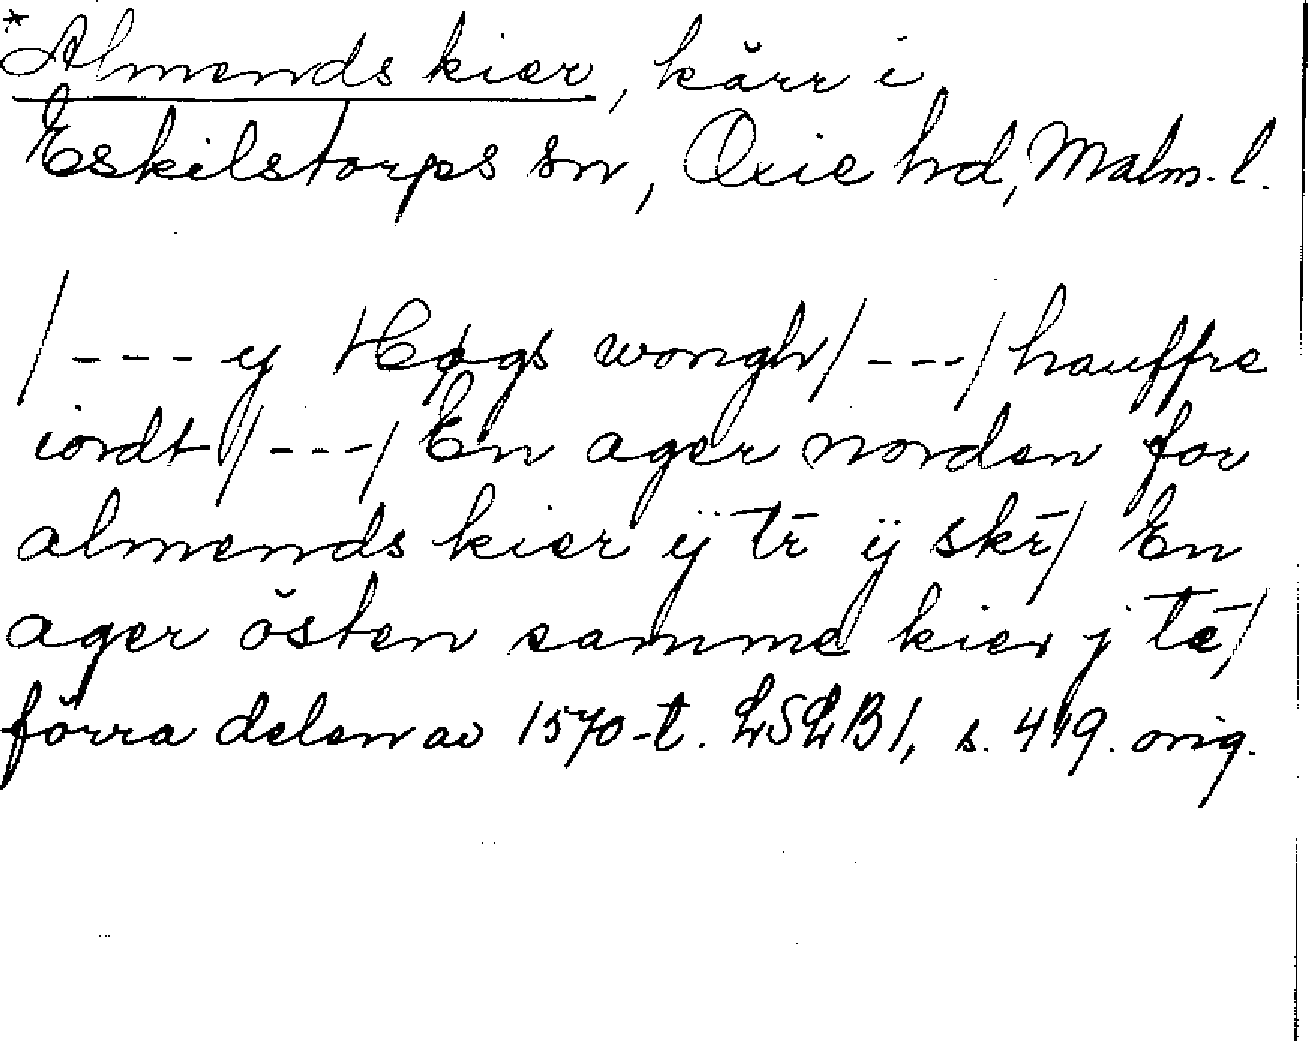 *Almends kier, kärr i
Eskilstorps sn, Oxie hd, Malm. l.
/---y Høgs wongh/---/hauffre
iordt/---/En ager norden for
almends kier ÿ tr̄ ÿ skr̄/ En
ager östen samme kier j tē/
förra delen av 1570-t. LSLB 1, s. 419. orig.